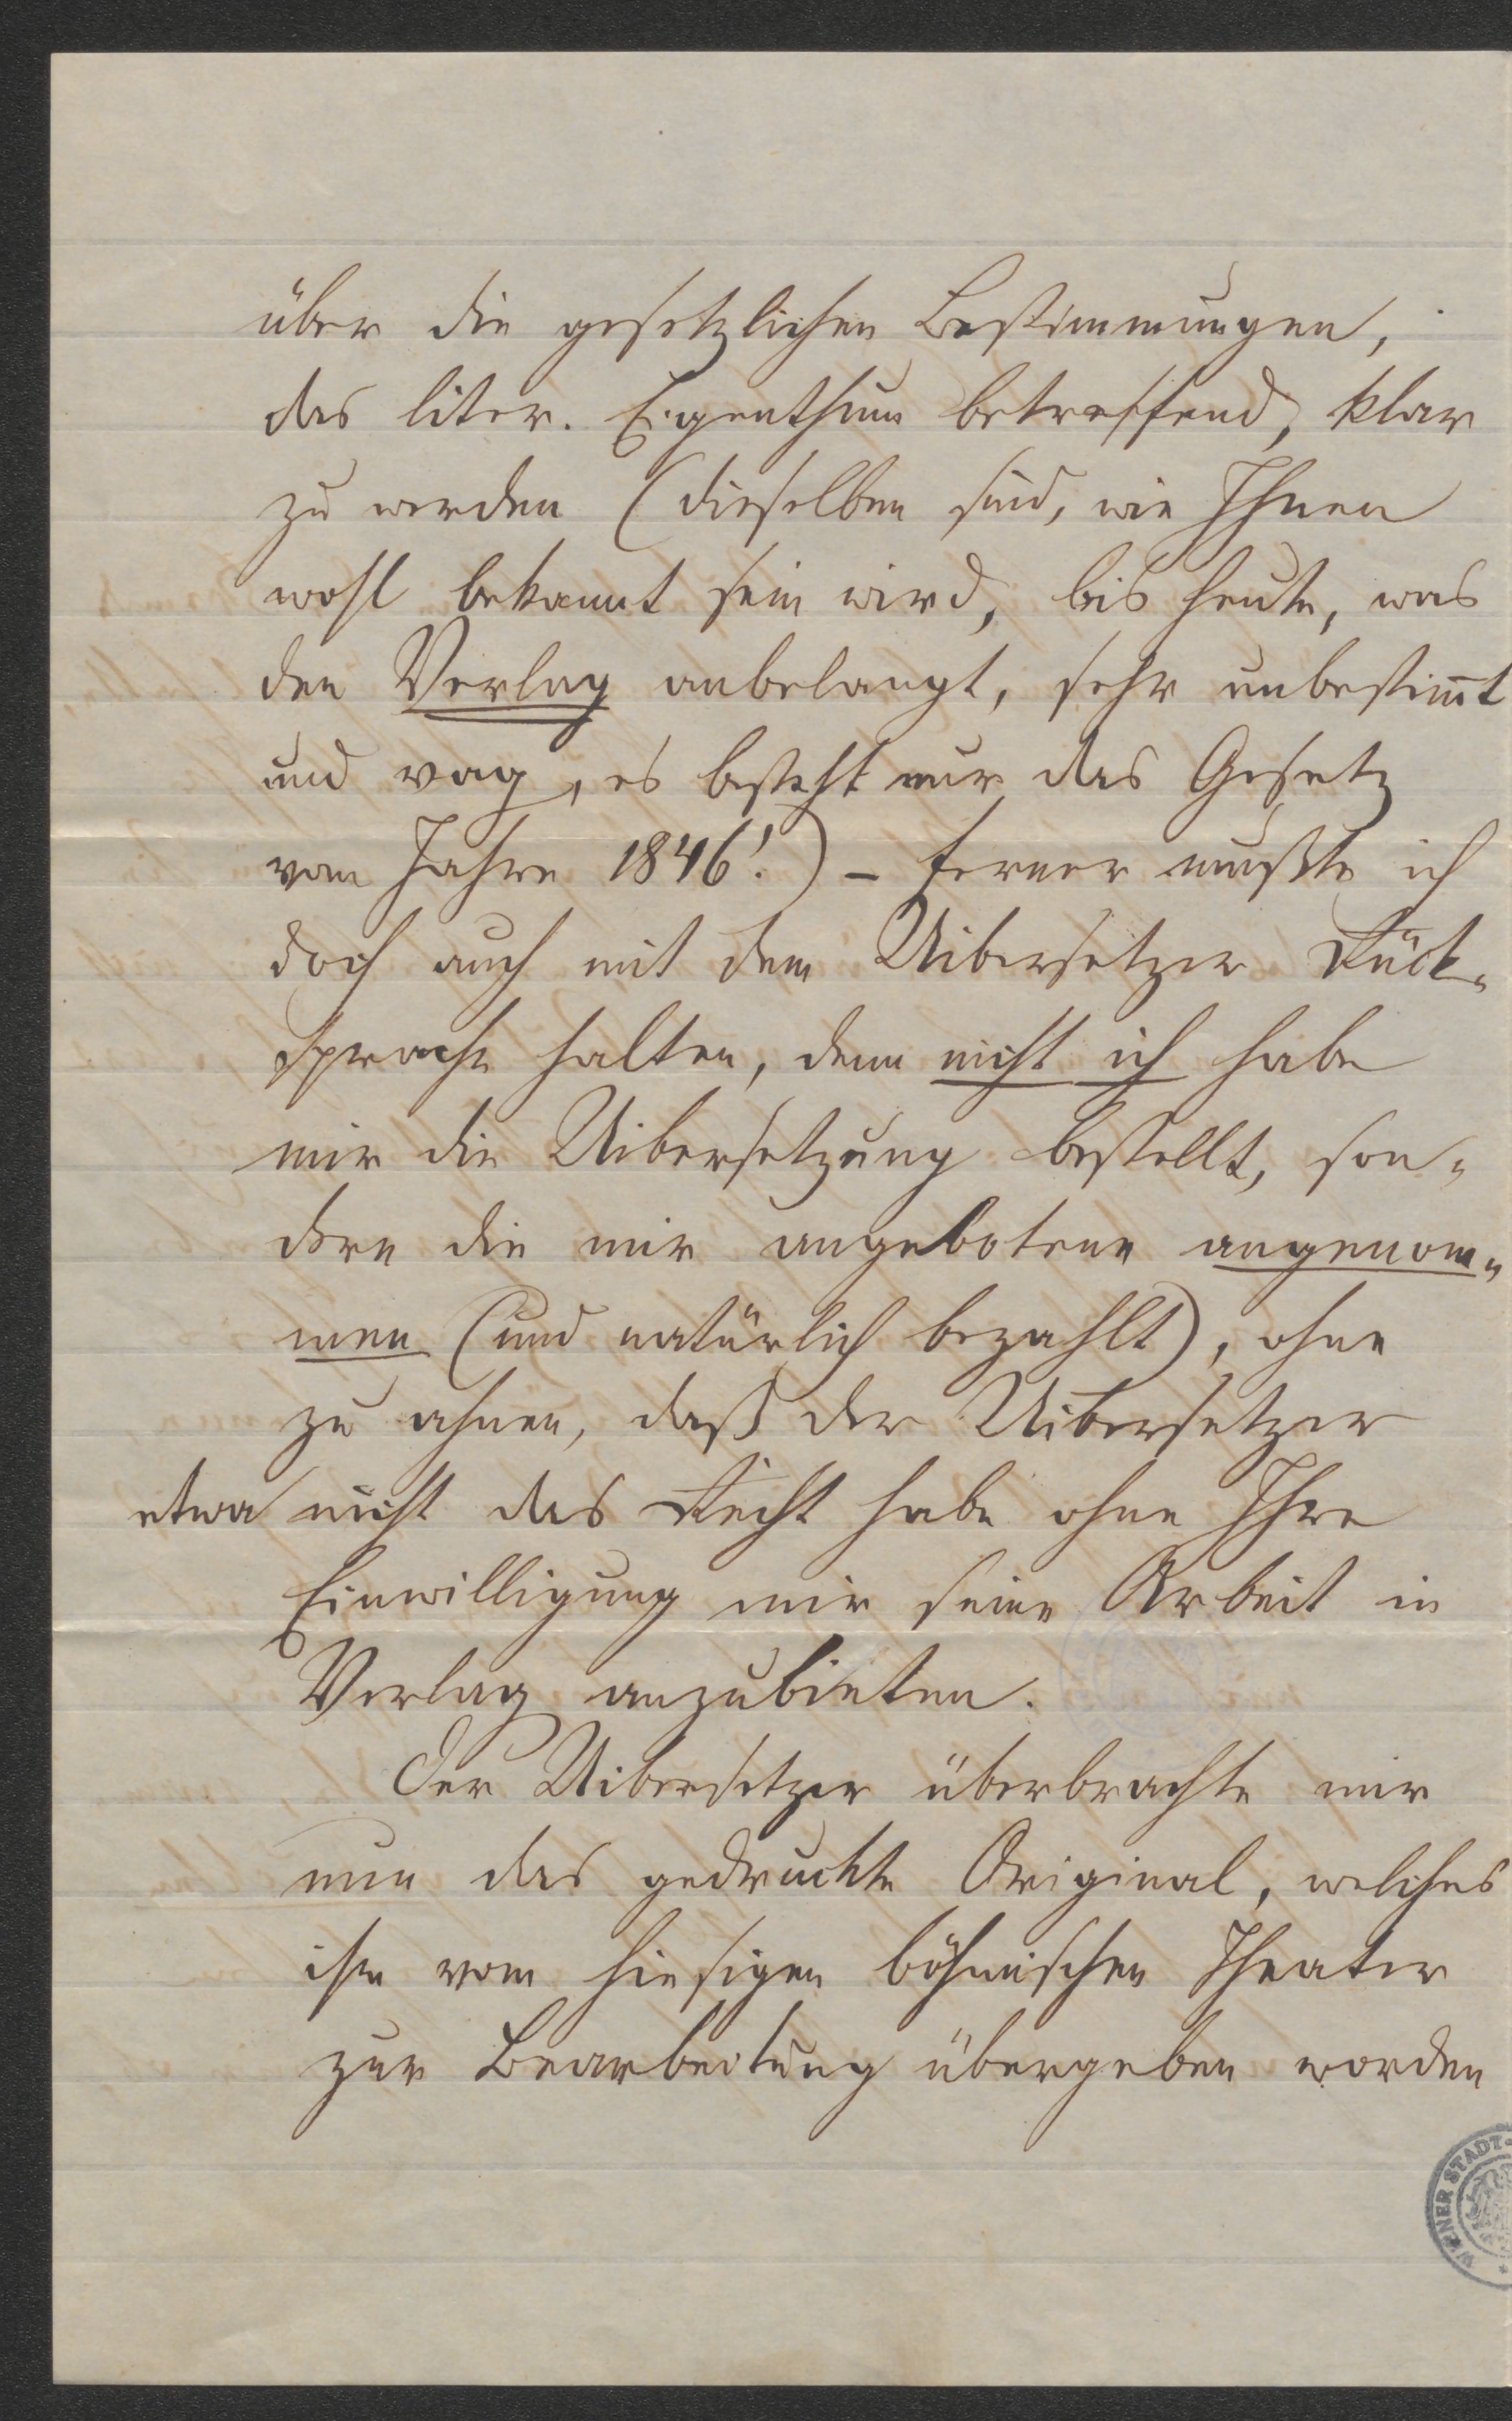 über die gesetzlichen Bestimmungen,
das liter. Eigenthum betreffend, klar
zu werden (dieselben sind, wie Ihnen
wohl bekannt sein wird, bis heute, was
den Verlag anbelangt, sehr unbestim̅t
und vag, es besteht nur das Gesetz
vom Jahre 1846!) – ferner mußte ich
doch auch mit dem Uibersetzer Rück-
sprache halten, denn nicht ich habe
mir die Uibersetzung bestellt, son-
dern die mir angebotene angenom-
men (und natürlich bezahlt), ohne
zu ahnen, daß der Uibersetzer
etwa nicht das Recht habe ohne Ihre
Einwilligung mir seine Arbeit in
Verlag anzubieten.
Der Uibersetzer überbrachte mir
nun das gedruckte Original, welches
ihm vom hiesigen böhmischen Theater
zur Bearbeitung übergeben worden
WIENER STADT-